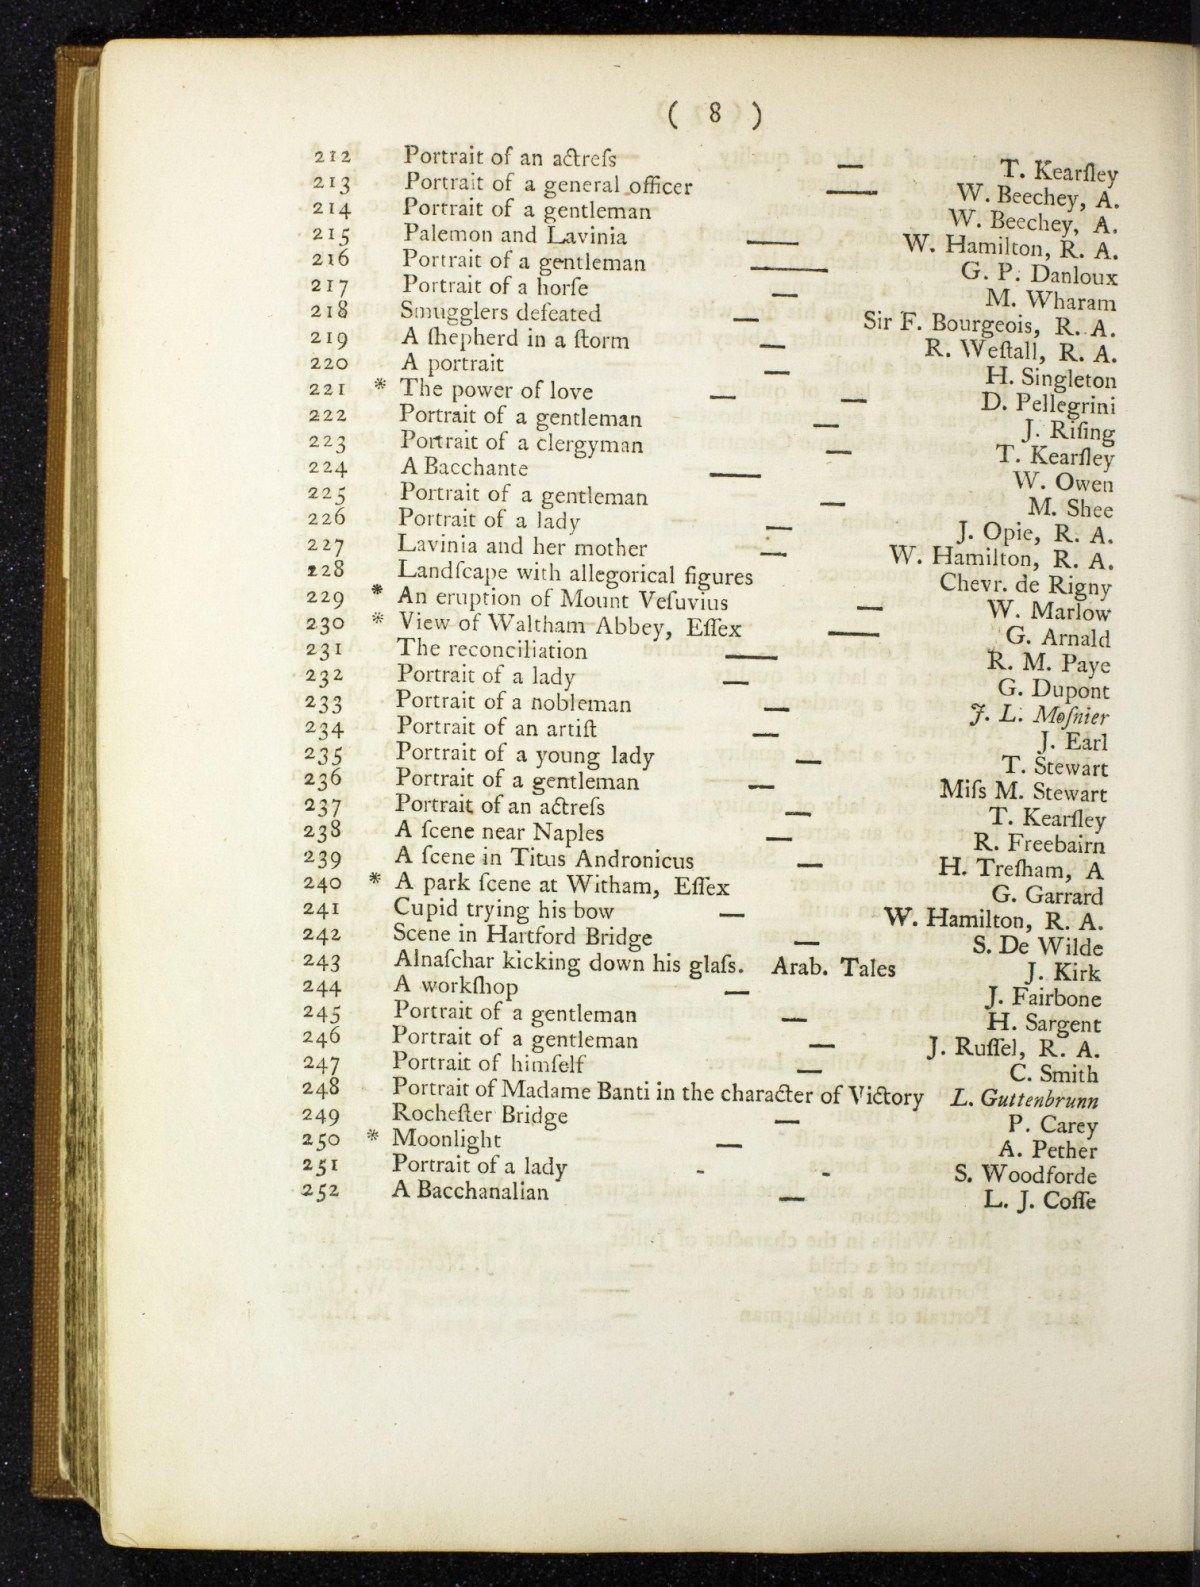 ( 8 )
212 Portrait of an actreſs — T. Kearſley
213 Portrait of a general officer — W. Beechey, A.
214 Portrait of a gentleman W. Beechey, A.
215 Palemon and Lavinia — W. Hamilton, R. A.
216 Portrait of a gentleman — G. P. Danloux
217 Portrait of a horſe — M. Wharam
218 Smugglers defeated — Sir F. Bourgeois, R. A.
219 A ſhepherd in a ſtorm — R. Weſtall, R. A.
220 A portrait — H. Singleton
221 * The power of love — — D. Pellegrini
222 Portrait of a gentleman — J. Riſing
223 Portrait of a clergyman — T. Kearſley
224 A Bacchante — W. Owen
225 Portrait of a gentleman — M. Shee
226 Portrait of a lady — J. Opie, R. A.
227 Lavinia and her mother — W. Hamilton, R. A.
228 Landſcape with allegorical figures Chevr. de Rigny
229 * An eruption of Mount Veſuvius — W. Marlow
230 * View of Waltham Abbey, Eſſex — G. Arnald
231 The reconciliation — R. M. Paye
232 Portrait of a lady — G. Dupont
233 Portrait of a nobleman — J. L. Moſnier
234 Portrait of an artiſt — J. Earl
235 Portrait of a young lady — T. Stewart
236 Portrait of a gentleman — Miſs M. Stewart
237 Portrait of an actreſs — T. Kearſley
238 A ſcene near Naples — R. Freebairn
239 A ſcene in Titus Andronicus — H. Treſham, A
240 * A park ſcene at Witham, Eſſex G. Garrard
241 Cupid trying his bow — W. Hamilton, R. A.
242 Scene in Hartford Bridge — S. De Wilde
243 Alnaſchar kicking down his glaſs. Arab. Tales J. Kirk
244 A workſhop — J. Fairbone
245 Portrait of a gentleman — H. Sargent
246 Portrait of a gentleman — J. Ruſſel, R. A.
247 Portrait of himſelf — C. Smith
248 Portrait of Madame Banti in the character of Victory L. Guttenbrunn
249 Rocheſter Bridge — P. Carey
250 * Moonlight — A. Pether
251 Portrait of a lady - - S. Woodforde
252 A Bacchanalian — L. J. Coſſe